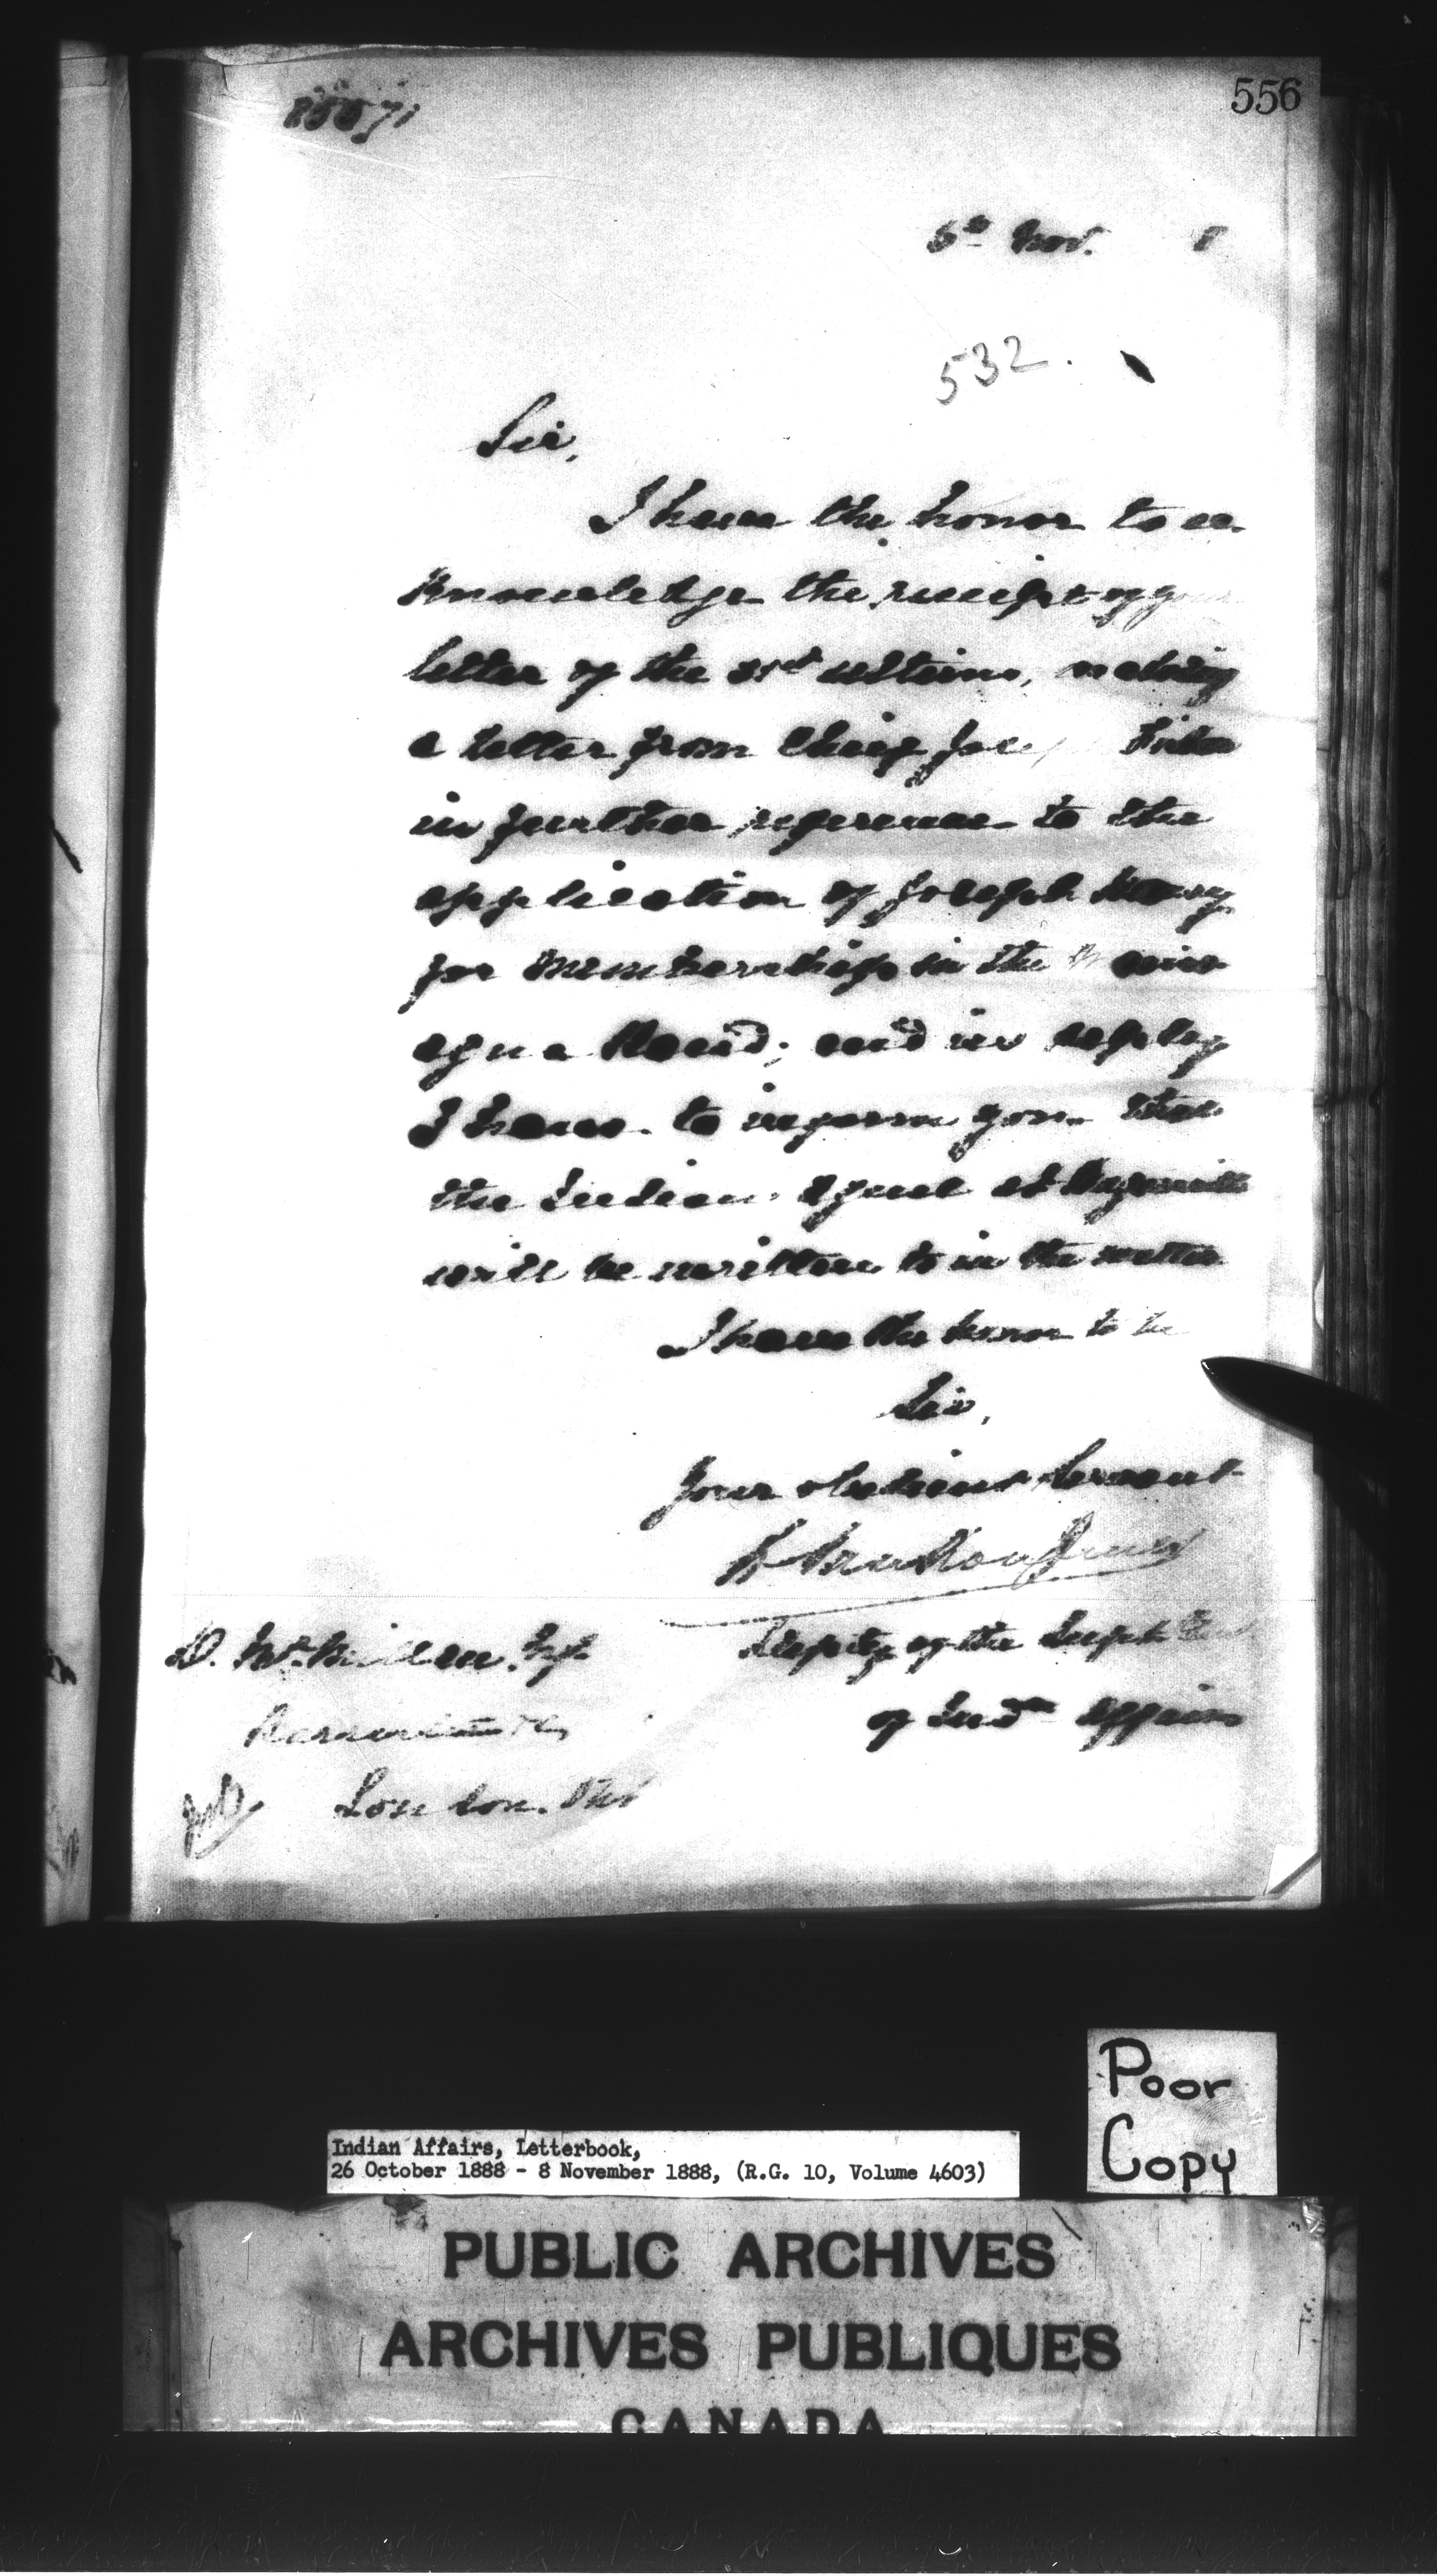 556
5th Nov. 8
532.
Sir,
I have the honor to ac
knowledge the receipt of your
letter of the 31st ultimo,
a letter from Chief Fisher
in further reference to the
application of Joseph
for membership in the
Band; and in reply
I have to inform you that
the Indian Agent at
will be written to in the matter
I have the honor to be
Sir,
Your obedient Servant
Deputy of the Supt. Gen
of Indn Affairs
D. McMillan. Esq
London. Ont
Poor
Copy
Indian Affairs, Letterbook,
26 October 1888 - 8 November 1888, (R.G. 10, Volume 4603)
PUBLIC ARCHIVES
ARCHIVES PUBLIQUES
CANADA